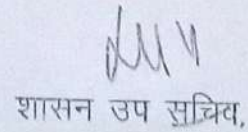 शासन उप सचिव,